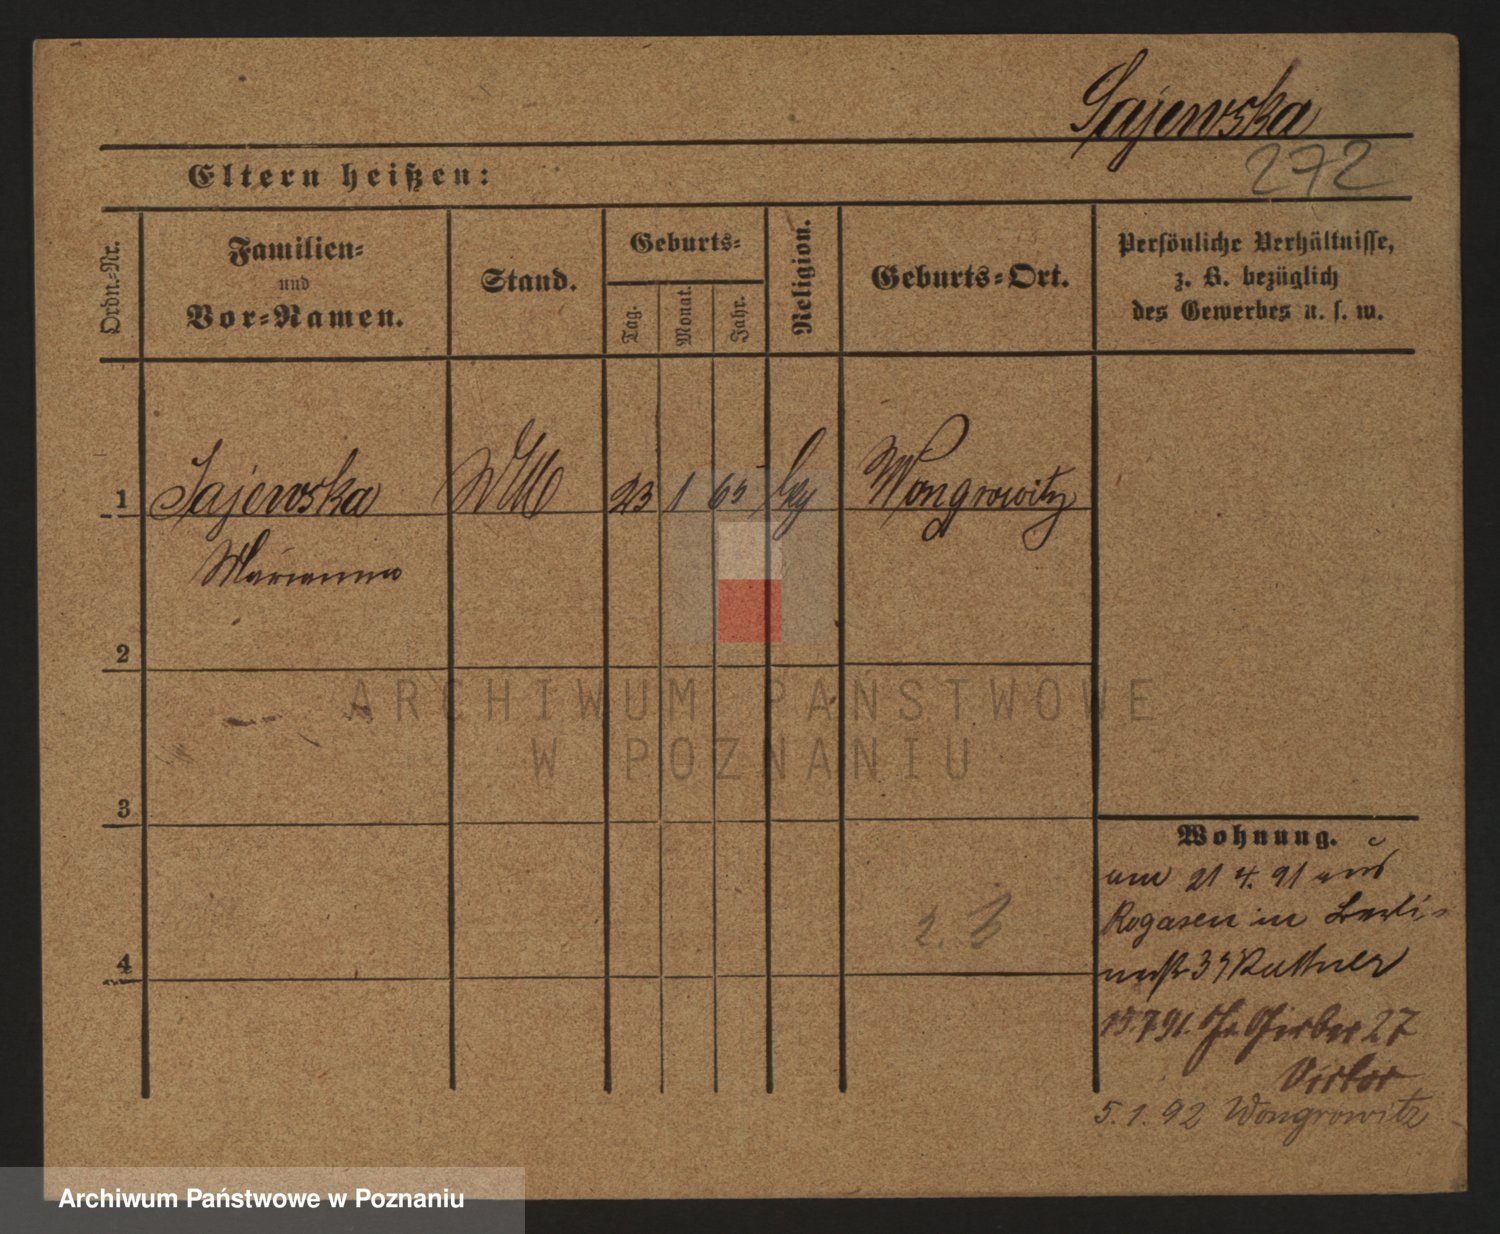 Sajewska
272
Eltern heißen:
Ordn.-Nr.
Familien-
und
Vor-Namen.
Stand.
Geburts-
Tag.
Monat.
Jahr.
Religion.
Geburts-Ort.
Persönliche Verhältnisse,
z. B. bezüglich
des Gewerbes u. s. w.
1 Sajewska 23 1 65 Wongrowitz
Marianna
2
3
4
ARCHIWUM PAŃSTWOWE
W POZNANIU
Wohnung.
21 4. 91 aus
Rogasen in
Kuttner
15.7.91. 27
5.1.92 Wongrowitz
Archiwum Państwowe w Poznaniu